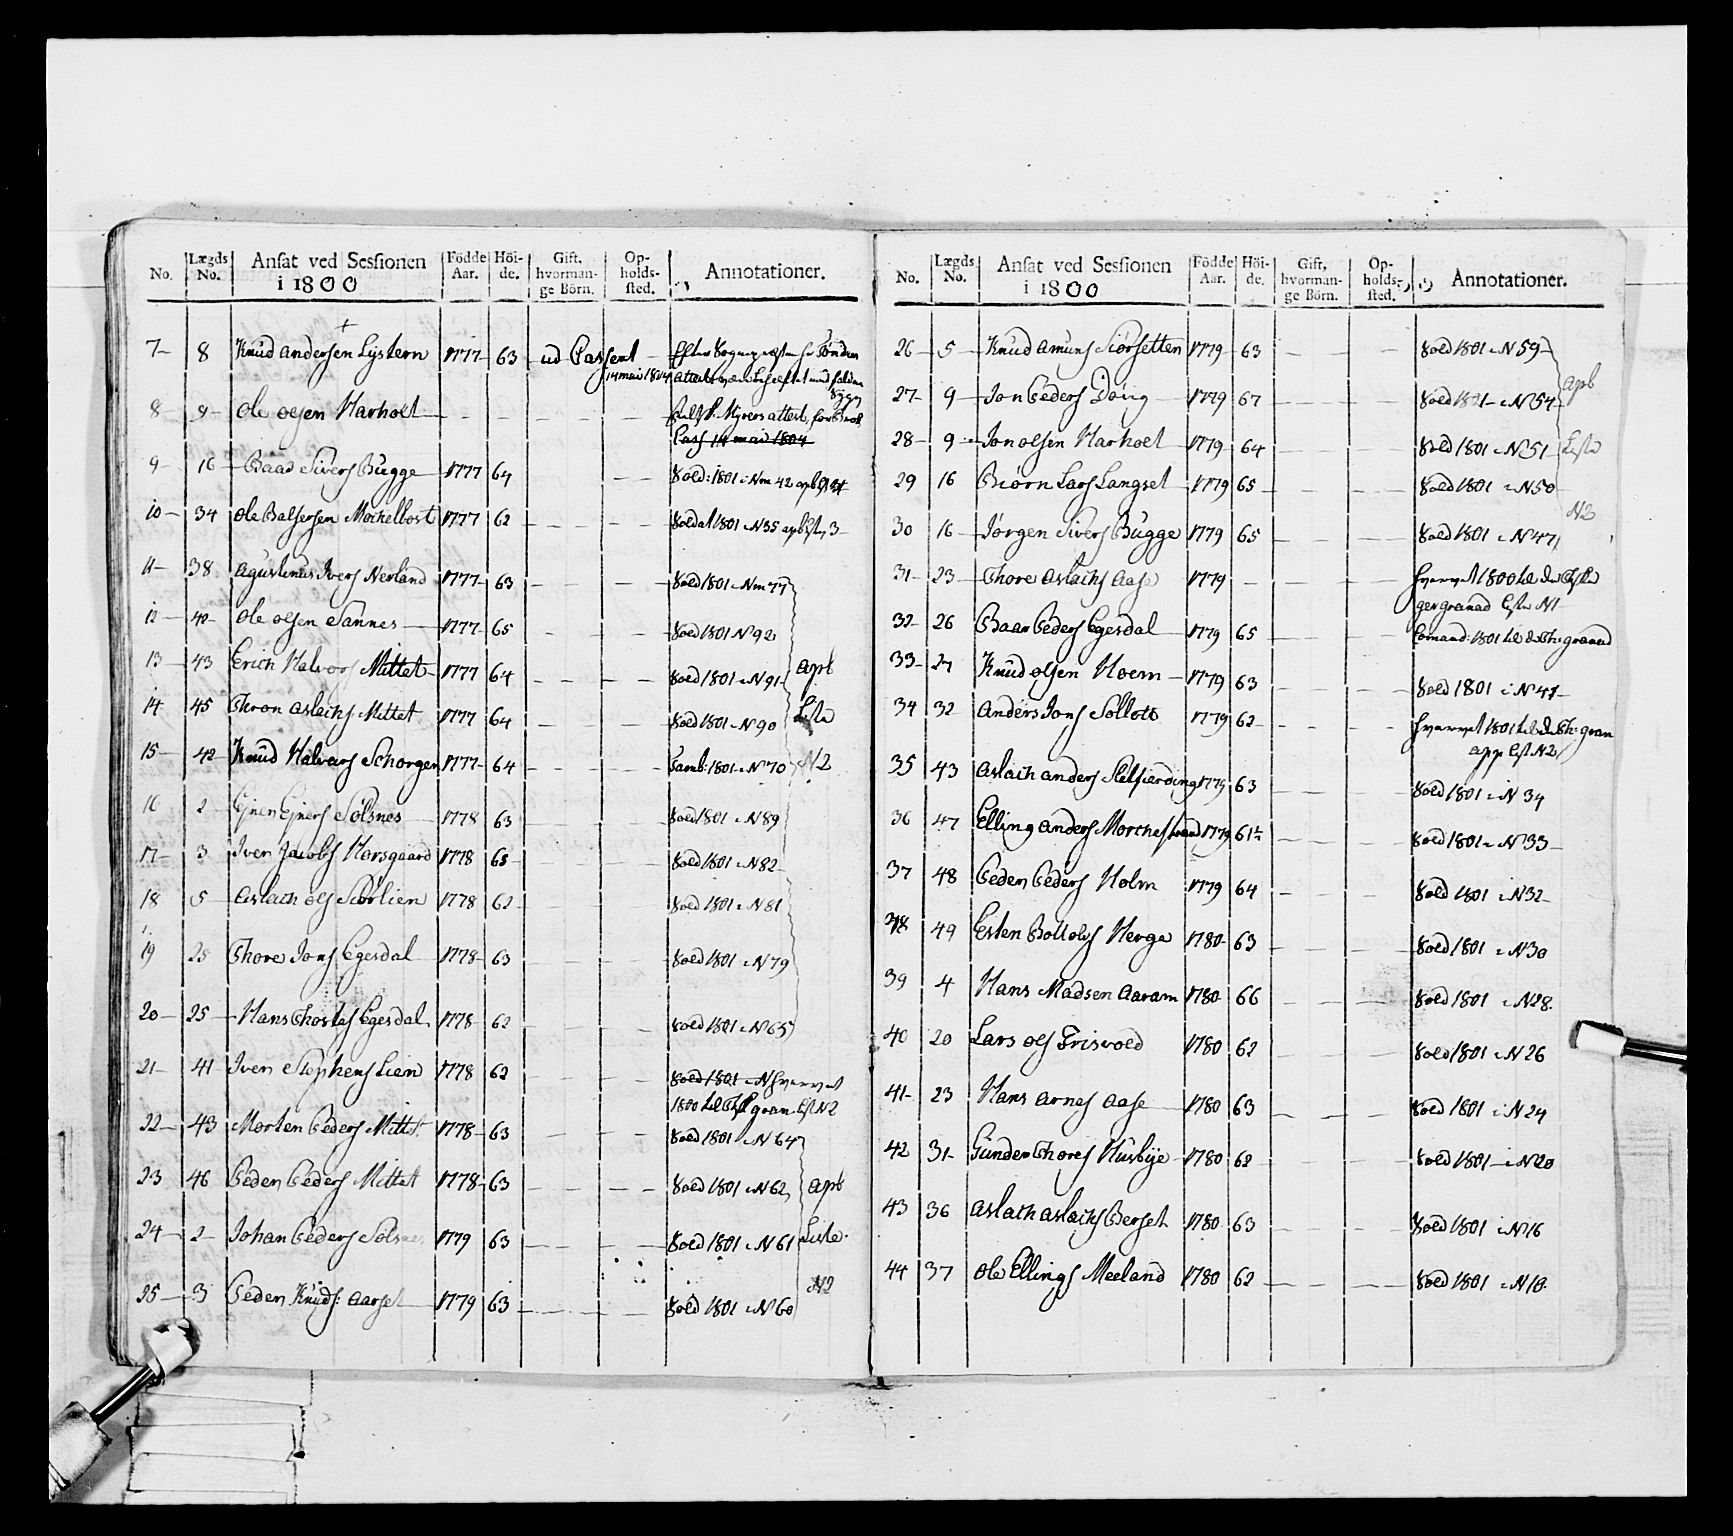 No. Lægds No. Ansat ved Sessionen i 1800 Födde Aar. Höi-de. Gift, hvorman-ge Börn. Op-holds-sted. Annotationer.
7 8 Knud Andersen Lystern 1777 63 ud Casseret
14 mai 1804
8 9 Ole Olsen Harholt
Cass 14 mai 1804
9 16 Baad Sivers Bugge 1777 64 Sold: 1801 i Nm 42
10 34 Ole Balsersen Mochelbost 1777 62 Soldat 1801 N 35
11 38 Agustinus Ivers Nerland 1777 63 Sold 1801 Nm 77
12 42 Ole Olsen Sannes 1777 65 Sold 1801 N 92
13 43 Erich Halvors Mittet 1777 64 Sold 1801 N 91 apb
14 45 Thron Aslachs Mittet 1777 64 Sold 1801 N 90 Liste
15 42 Knud Halvors Schorgen 1777 64 Tamb: 1801 N 70 N2
16 2 Ejnen Ejners Solsnes 1778 63 Sold 1801 N 89
17 3 Iven Jacobs Horsgaard 1778 68 Sold 1801 N 82
18 5 Aslach Ols Siørlien 1778 62 Sold 1801 N 81
19 25 Thore Jons Egesdal 1778 63 Sold 1801 N 79
20 25 Hans Thostes Egesdal 1778 62 Sold 1801 N 65
21 41 Iven Stephens Lien 1778 62 Sold 1801 N hvervet
1800 gran List N2
22 43 Morten Peders Mittet 1778 63 Sold 1801 N 64
23 46 Peder Peders Mittet 1778 63 Sold 1801 N 62 apb
24 2 Johan Peders Solsnes 1779 63 Sold 1801 N 61 Liste
N2
25 3 Peder Knuds: Aarset 1779 63 Sold 1801 N 60
No. Lægds No. Ansat ved Sessionen i 1800 Födde Aar. Höi-de. Gift, hvorman-ge Börn. Op-holds-sted. Annotationer.
26 5 Knud Amuns Siorsetten 1779 63 Sold 1801 N 59
27 9 Jon Peders Dövig 1779 67 Sold 1801 N 54 apb
28 9 Jon Olsen Harholt 1779 64 Sold 1801 N 51 Liste
29 16 Biørn Lars Langset 1779 65 Sold 1801 N 50
N2
30 16 Jørgen Sivers Bugge 1779 65 Sold 1801 N 47
31 23 Thore Aslachs Aase 1779 hvervet 1800
granad Liste N1
32 26 Baar Peders Egesdal 1779 65 Comand: 1801 granad
33 27 Knud Olsen Hoem 1779 63 Sold 1801 i N 41
34 32 Anders Jons Sollott 1779 62 hvervet 1801 gran
app List N2
35 43 Aslach Anders Sletfierding 1779 63 Sold 1801 N 34
36 47 Elling Anders Morchestrand 1779 61½ Sold 1801 N 33
37 48 Peder Peders Holm 1779 64 Sold 1801 i N 32
38 49 Esten Bottolvs Herge 1780 63 Sold 1801 N 30
39 4 Hans Madsen Aaram 1780 66 Sold 1801 N 28
40 20 Lars Ols Frisvold 1780 62 Sold 1801 N 26
41 23 Hans Arnes Aase 1780 63 Sold 1801 i N 24
42 31 Gunder Thores Husbye 1780 62 Sold 1801 i N 20
43 36 Aslach Aslachs Berset 1780 63 Sold 1801 i N 16
44 37 Ole Ellings Meeland 1780 62 Sold 1801 N 10